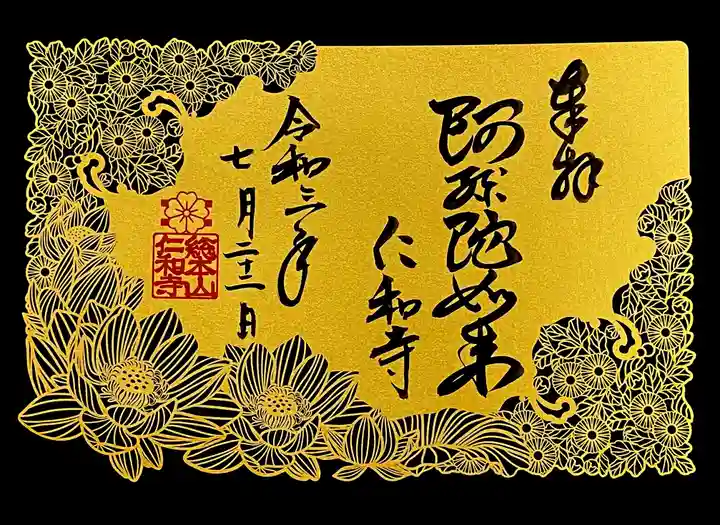 奉拝
阿弥陀如来
仁和寺
令和三年
七月二十一日
総本山
仁和寺